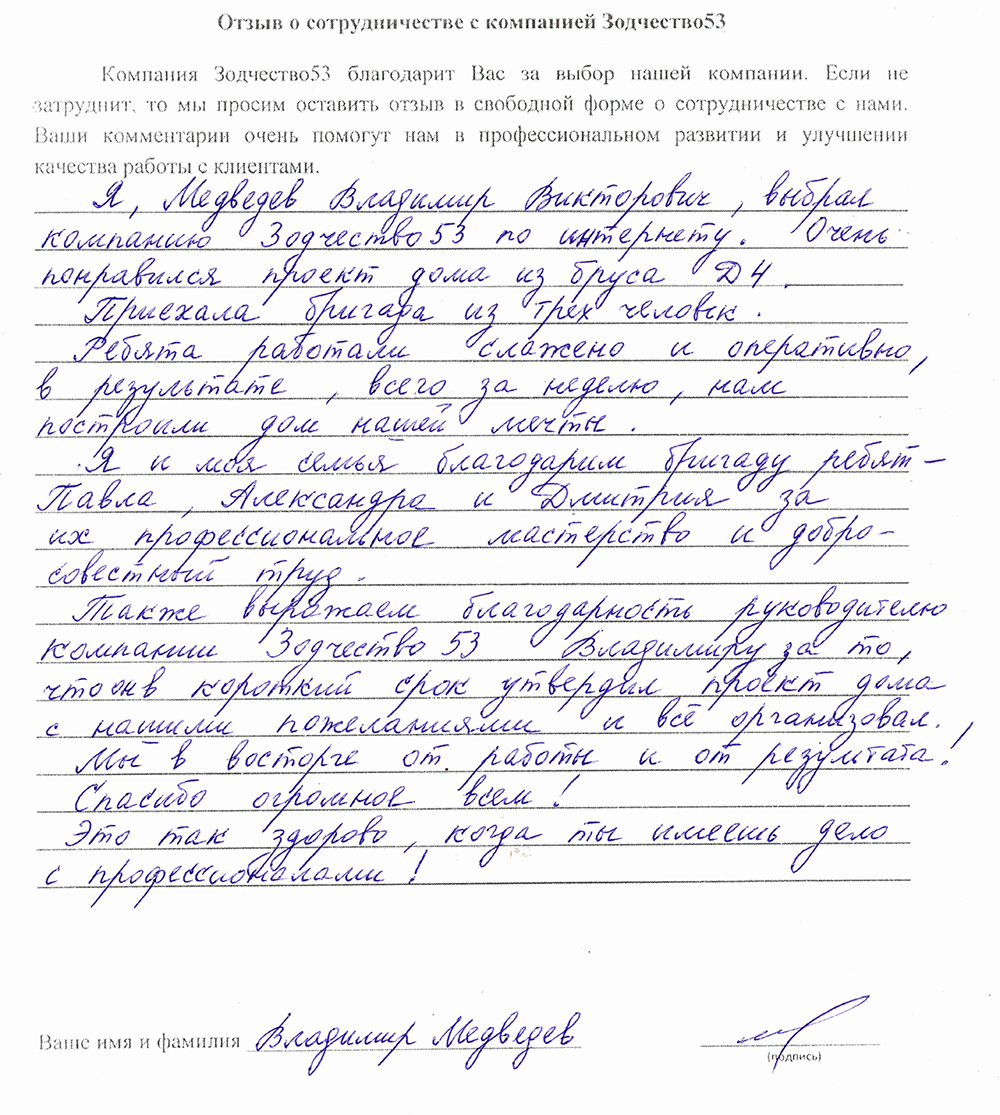 Отзыв о сотрудничестве с компанией Зодчество53
Компания Зодчество53 благодарит Вас за выбор нашей компании. Если не
затруднит, то мы просим оставить отзыв в свободной форме о сотрудничестве с нами.
Ваши комментарии очень помогут нам в профессиональном развитии и улучшении
качества работы с клиентами.
Я, Медведев Владимир Викторович, выбрал
компанию Зодчество53 по интернету. Очень
понравился проект дома из бруса Д4.
Приехала бригада из трех человек.
Ребята работали слажено и оперативно,
в результате, всего за неделю, нам
построили дом нашей мечты.
Я и моя семья благодарим бригаду ребят–
Павла, Александра и Дмитрия за
их профессиональное мастерство и добро-
совестный труд.
Также выражаем благодарность руководителю
компании Зодчество 53 Владимиру за то,
что он в короткий срок утвердил проект дома
с нашими пожеланиями и всё организовал.
Мы в восторге от работы и от результата!
Спасибо огромное всем!
Это так здорово, когда ты имеешь дело
с профессионалами!
Ваше имя и фамилия Владимир Медведев
(подпись)